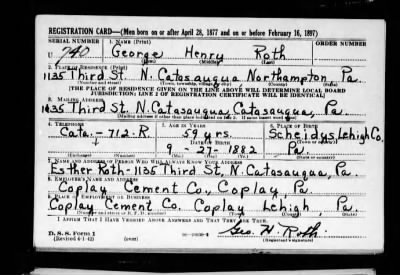 REGISTRATION CARD—(Men born on or after April 28, 1877 and on or before February 16, 1897)
SERIAL NUMBER 1. NAME (Print) ORDER NUMBER
U 740 George Henry Roth
(First) (Middle) (Last)
2. PLACE OF RESIDENCE (Print)
1135 Third St. N. Catasauqua Northampton Pa.
(Number and street) (Town, township, village, or city) (County) (State)
[THE PLACE OF RESIDENCE GIVEN ON THE LINE ABOVE WILL DETERMINE LOCAL BOARD
JURISDICTION; LINE 2 OF REGISTRATION CERTIFICATE WILL BE IDENTICAL]
3. MAILING ADDRESS
1135 Third St. N. Catasauqua, Catasauqua, Pa.
[Mailing address if other than place indicated on line 2. If same insert word same]
4. TELEPHONE 5. AGE IN YEARS 6. PLACE OF BIRTH
Cata. - 712-R 59 yrs. Scheidys, Lehigh Co.
DATE OF BIRTH (Town or county)
9-27-1882 Pa.
(Exchange) (Number) (Mo.) (Day) (Yr.) (State or country)
7. NAME AND ADDRESS OF PERSON WHO WILL ALWAYS KNOW YOUR ADDRESS
Esther Roth-1135 Third St, N. Catasauqua, Pa.
8. EMPLOYER'S NAME AND ADDRESS
Coplay Cement Co., Coplay, Pa.
9. PLACE OF EMPLOYMENT OR BUSINESS
Coplay Cement Co. Coplay Lehigh Pa.
(Number and street or R. F. D. number) (Town) (County) (State)
I AFFIRM THAT I HAVE VERIFIED ABOVE ANSWERS AND THAT THEY ARE TRUE.
D. S. S. Form 1
(Revised 4-1-42) (over) Geo. H. Roth
(Registrant's signature)